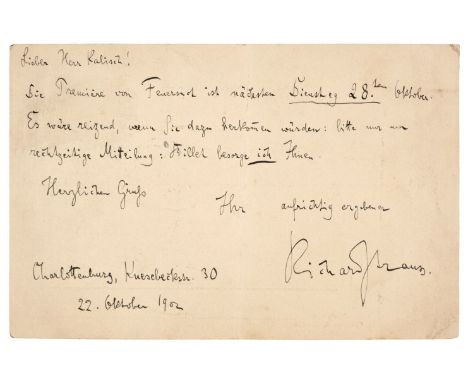 Lieber Herr Kalisch!
Die Première von Feuersnot ist nächsten Dienstag 28.ten Oktober.
Es wäre reizend, wenn Sie dazu herkommen würden: bitte nur um
rechtzeitige Mitteilung: Billet besorge ich Ihnen.
Herzlichen Gruß
Ihr aufrichtig ergebener
Richard Strauss.
Charlottenburg, Knesebeckstr. 30
22. Oktober 1902